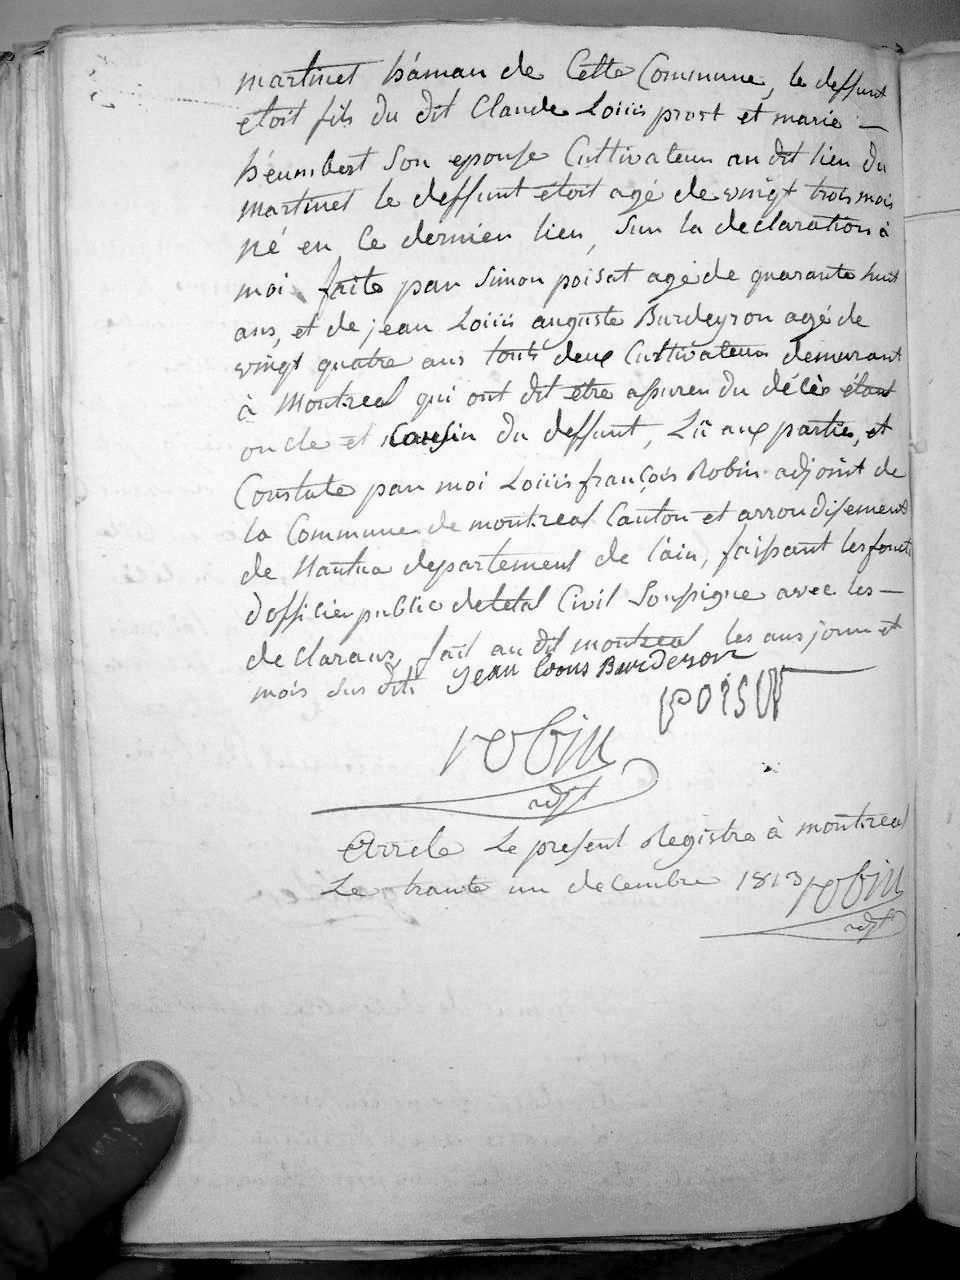 martinet háman de Cette Commune, le deffunt
etoit fils du dit Claude Loüis prost et marie —
héumbert Son epouse Cultivateur au dit lieu du
martinet le deffunt etoit agé de vingt trois mois
né en Ce dernier lieu, Sur la declaration à
moi faite par Simon poisat agé de quarante huit
ans, et de jean Loüis auguste Burdeyron agé de
vingt quatre ans touts deux Cultivateur demurant
à Montreal qui ont dit etre assuren du décès étant
oncle et Cousin du deffunt, Lû aux partie, et
Constate par moi Loüis françois Robin adjoint de
la Commune de montreal Canton et arrondisement
de Nantua departement de l'ain, faissant les fonct
d'officier public de letal Civil Soussigne avec les —
declarans, fait au dit montreal les ans jour et
mois sus dits Jean louis Burdeyron
poisat
robin
adjt
Arrele Le present Registre à montreal
Le trante un decembre 1813 robin
adjt